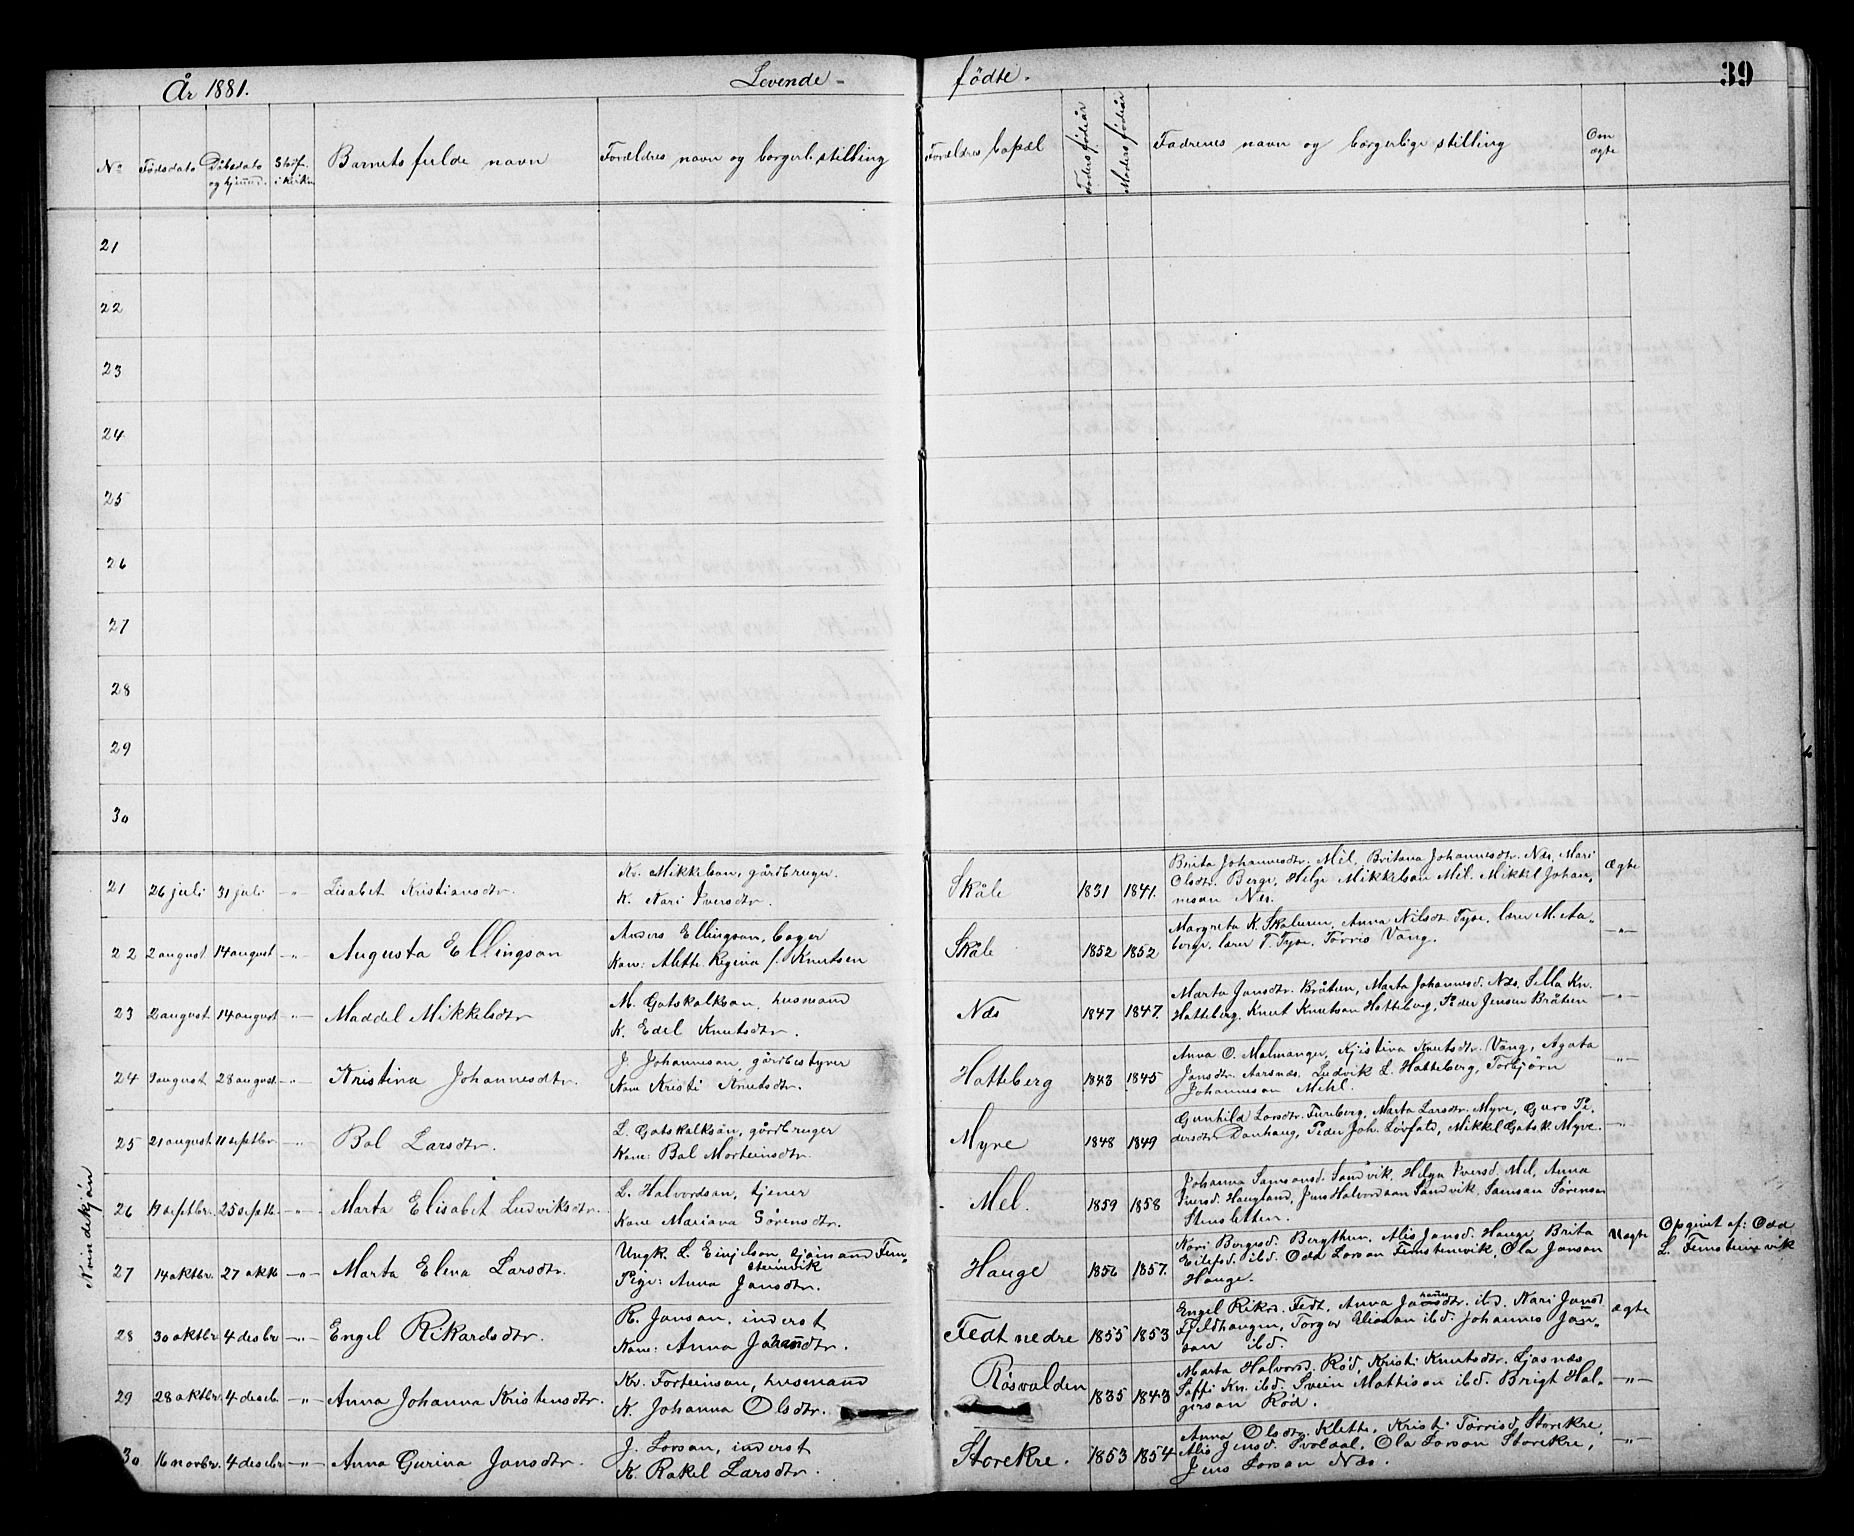 År 1881. Levende- fødte. 39
No Fødsdato Døbsdato og hjemd. Stadf. i kirken Barnets fulde navn Forældres navn og borgerl. stilling Forældres bopæl Faders fødeår Moders fødeår Fadrenes navn og borgerlige stilling Om ægte
21
22
23
24
25
26
27
28
29
30
Kvindekjøn
21 26 juli 31 juli -"- Lisabet Kristiansdtr. Kr. Mikkelson, gårdbruger. K. Kari Iversdtr. Skåle 1831 1841. Brita Johannesdtr. Mel, Britana Johannesdtr. Næs, Mari Olsdtr. Berge, Helge Mikkelson Mel. Mikkel Johannesson Næs. Ægte
22 2 august 14 august -"- Augusta Ellingson Anders Ellingson, bager Kone: Alette Regina f. Knutsen Skåle 1852 1852 Margreta K. Skåluren, Anna Nilsdt. Tyse, lærer M. Aaberge, lærer T. Tyse, Torris Vang. -"-
23 2 august 14 august -"- Maddel Mikkelsdtr M. Gotskalkson, husmand K. Edel Knutsdtr. Næs 1847 1847. Marta Jonsdtr. Bråten, Marta Johannesd. Næs, Sella Kn. Hatteberg, Knut Knutson Hatteberg, Peder Jensen Bråten -"-
24 9 august 28 august -"- Kristina Johannesdtr. J. Johanneson, gårdbestyrer Kone Kristi Knutsdtr. Hatteberg 1843 1845 Anna O. Malmanger, Kjistina Knutsdtr. Vang, Agata Jonsdtr. Aarsnæs, Ludvik L. Hatteberg, Torbjørn Johanneson Mehl. -"-
25 21 august 11 septbr. -"- Bol Larsdtr. L. Gotskalksøn, gårdbruger Kone: Bol Morteinsdtr. Myre 1848 1849 Gunhild Larsdtr. Fureberg, Marta Larsdtr. Myre, Guro Pedersdtr. Dønhaug, Peder Joh. Løvfald, Mikkel Gotsk. Myre. -"-
26 19 septbr. 25 septb. -"- Marta Elisabet Ludviksdtr. L. Halvordson, tjener Kone Mariana Sørensdtr. Mel. 1859 1858 Johanna Samsonsd. Sandvik, Helga Iversd. Mel, Anna Iversd. Haugland, Jens Halvordson Sandvik, Samson Sørenson Stensletten.
27 14 oktbr. 27 okt. -"- Marta Elena Larsdtr. Ungk. L. Einjelson, sjømand Femsteinevik Pige: Anna Jonsdtr. Hauge 1856 1857. Kari Borgesd. Bergthun, Alis Jonsd. Hauge, Brita Eilefsd. ibd. Odd Larson Femsteinvik, Ola Jonson Hauge. Uægte Opgivet af: Odd L. Femsteinevik
28 30 oktbr. 4 desbr -"- Engel Rikardsdtr. R. Jonson, inderst Kone: Anna Johansdtr. Fedt nedre 1855 1853 Engel Rikrd. Fedt, Anna Johannesdtr. ibd. Kari Jonsd. Fjeldhaugen, Torger Eliason ibd. Johannes Jonson ibd. ægte
29 28 oktbr. 4 deseb. -"- Anna Johanna Kristensdtr. Kr. Torteinson, husmand K. Johanna Olsdtr. Røsvalden 1835 1843 Marta Halvorsd. Rød, Kristi Knutsdtr. Ljosnæs Soffi Kn. ibd. Svein Mattison ibd. Brigt Halgerson Rød. -"-
30 16 novbr. 4 desebr -"- Anna Gurina Jonsdtr. J. Larson, inderst K. Rakel Larsdtr. Storekre. 1853 1854 Anna Olsdtr. Klette, Kristi Torrisd. Storekre, Alis Jensd. Svoldal, Ola Larson Storekre, Jens Larson Næs. -"-